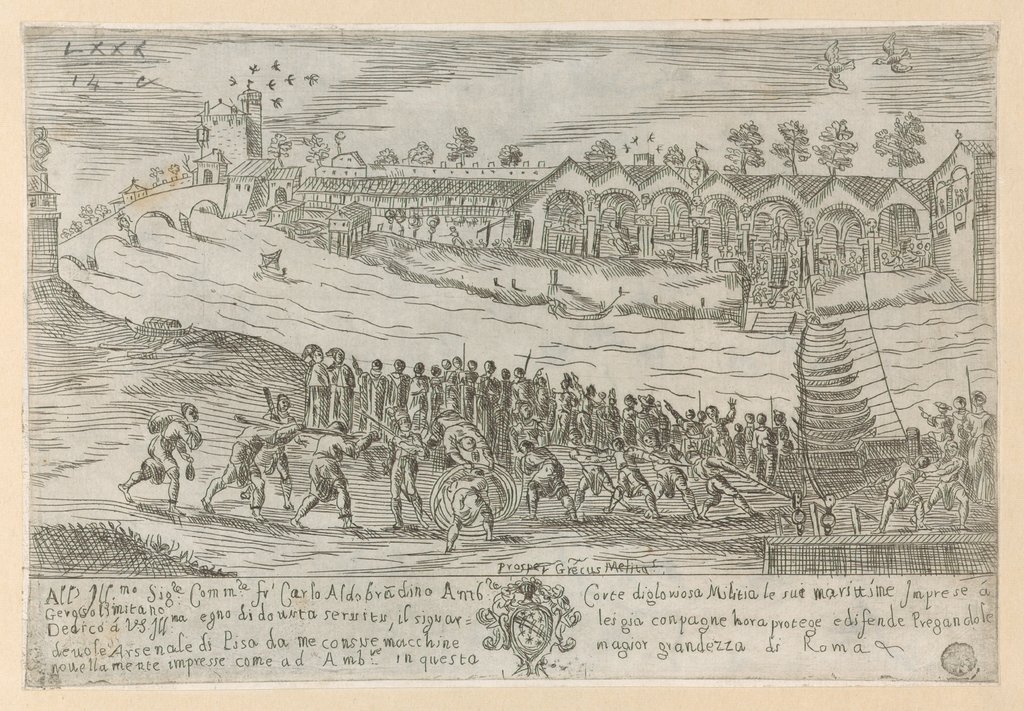 LXXX
14
Prosper Grecus Melita
All' Ill.mo Sig.re Comm.re fr' Carlo Aldobradino Amb.re
Gerosolimitano
Dedico á VS Ill.ma egno di dovuta servitu, il sguar=
devole Arsenale di Pisa da me con sue macchine
novellamente impresse come ad Amb.re in questa
Corte di glowosa Militia le sue marittime Imprese á
lei gia conpagne hora protege e difende Pregandole
magior grandezza di Roma